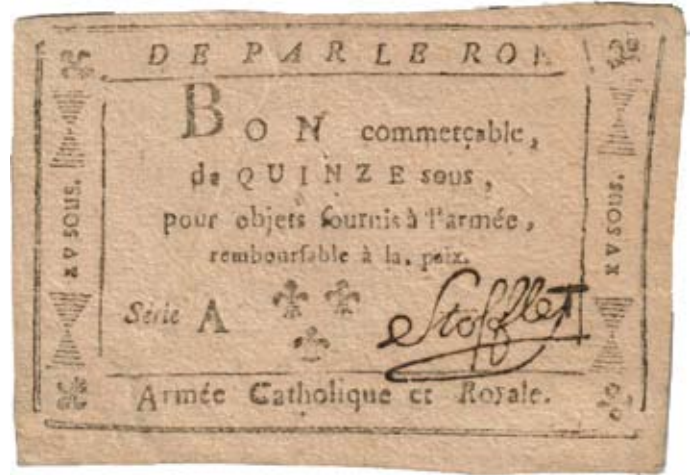 DE PAR LE ROI
BON commerçable,
de QUINZE sous,
pour objets fournis à l'armée,
remboursable à la paix.
Série A
Stofflet
Armée Catholique et Royale.
XV SOUS.
XV SOUS.